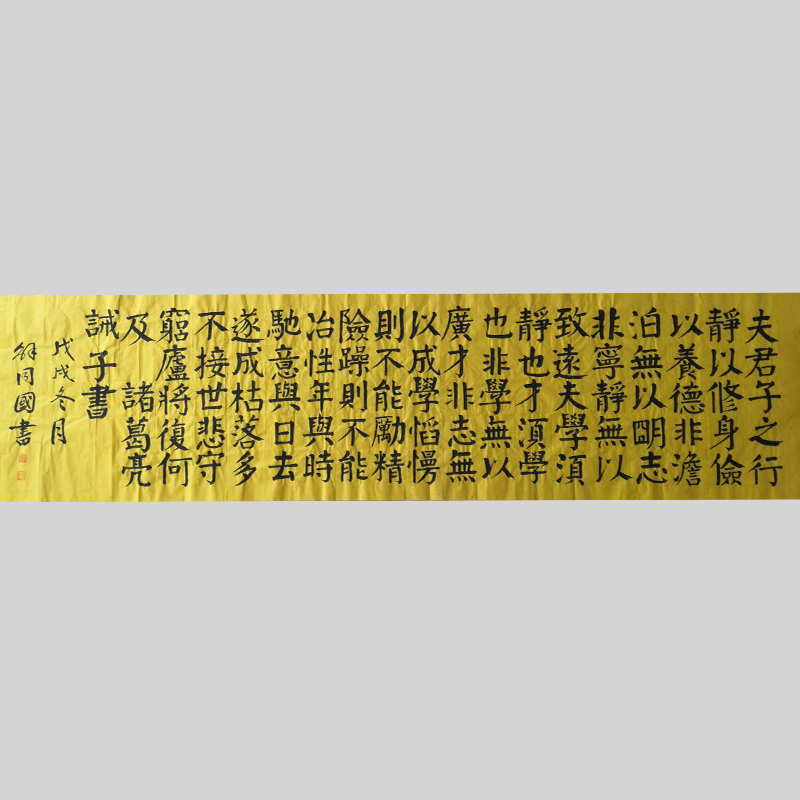 夫君子之行
靜以修身儉
以養德非澹
泊無以朙志
非寧靜無以
致遠夫學湏
靜也才湏學
也非學無以
廣才非志無
以成學慆慢
則不能勵精
險躁則不能
冶性年與時
馳意與日去
遂成枯落多
不接世悲守
窮廬將復何
及 諸葛亮
誡子書
戊戌冬月
同國書